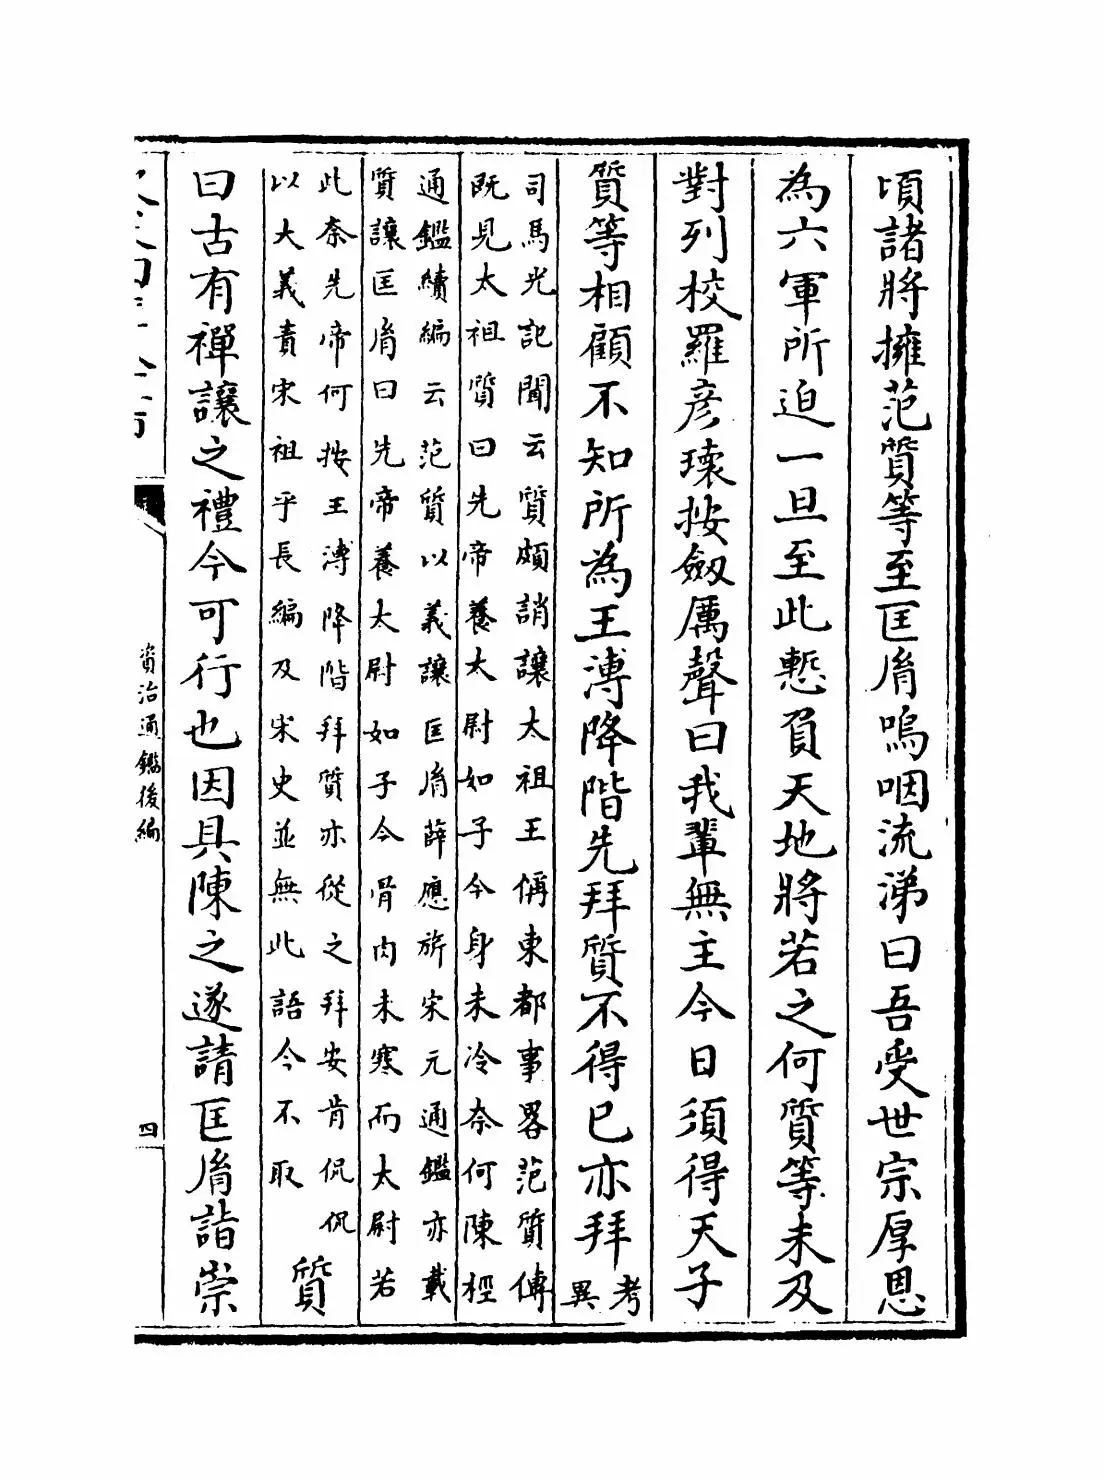 頃諸將擁范質等至匡胤嗚咽流涕曰吾受世宗厚恩
為六軍所迫一旦至此慙負天地將若之何質等未及
對列校羅彦瓌按劔厲聲曰我輩無主今日須得天子
質等相顧不知所為王溥降階先拜質不得已亦拜考異
司馬光記聞云質頗誚讓太祖王偁東都事畧范質傳
既見太祖質曰先帝養太尉如子今身未冷奈何陳桱
通鑑續編云范質以義讓匡胤薛應旂宋元通鑑亦載
質讓匡胤曰先帝養太尉如子今骨肉未寒而太尉若
此奈先帝何按王溥降階拜質亦從之拜安肯侃侃
以大義責宋祖乎長編及宋史並無此語今不取
質
曰古有禪讓之禮今可行也因具陳之遂請匡胤詣崇
資治通鑑後編
四